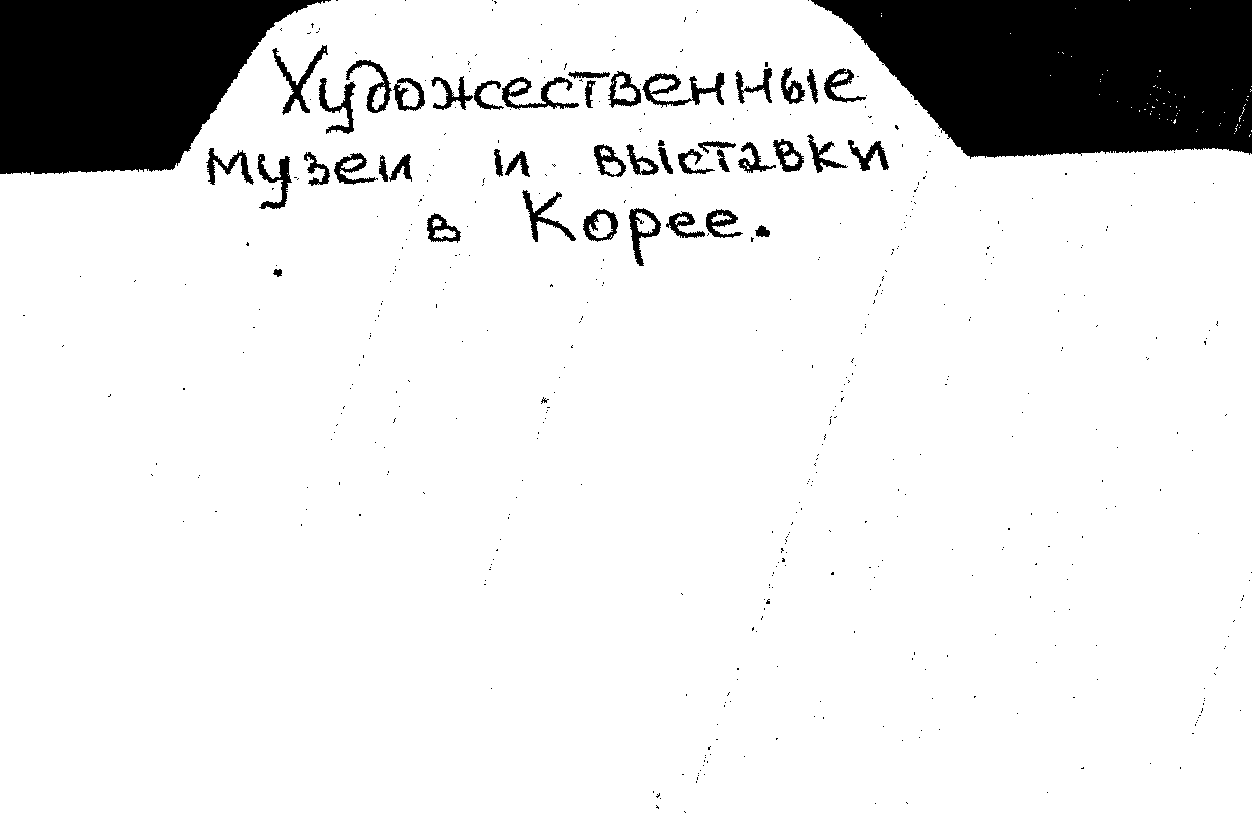 Художественные
музеи и выставки
в Корее.